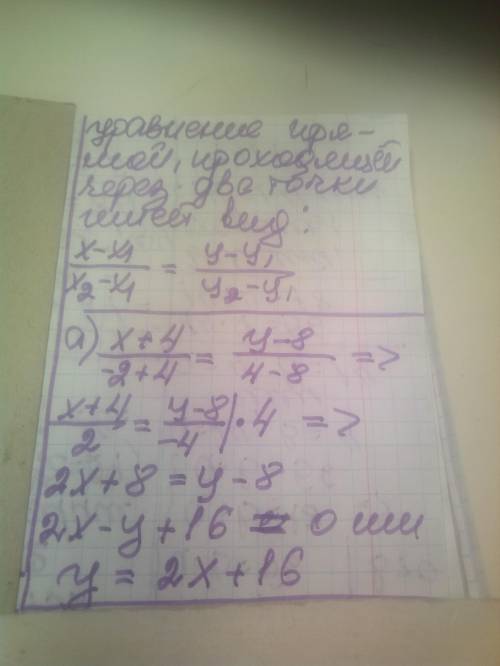 уравнение пря-
мой, проходящей
через два точки
имеет вид:
x-x₁/x₂-x₁ = y-y₁/y₂-y₁
а) x+4/-2+4 = y-8/4-8 =>
x+4/2 = y-8/-4 |·4 =>
2x+8=y-8
2x-y+16=0 или
y=2x+16